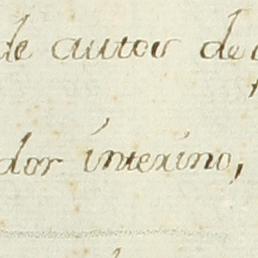 de autor de
dor interino,